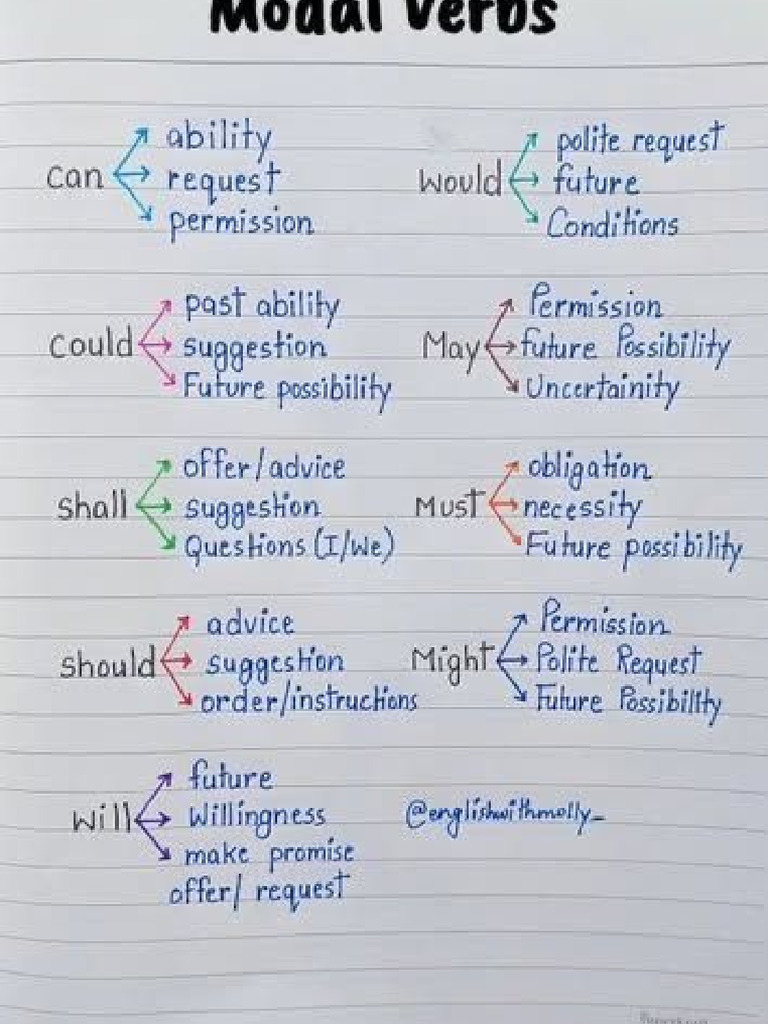 Modal Verbs
can
ability
request
permission
would
polite request
future
Conditions
Could
past ability
suggestion
Future possibility
May
Permission
future Possibility
Uncertainity
shall
offer/advice
suggestion
Questions (I/We)
Must
obligation
necessity
Future possibility
should
advice
suggestion
order/instructions
Might
Permission
Polite Request
Future Possibility
will
future
Willingness
make promise
offer/ request
@englishwithmolly_